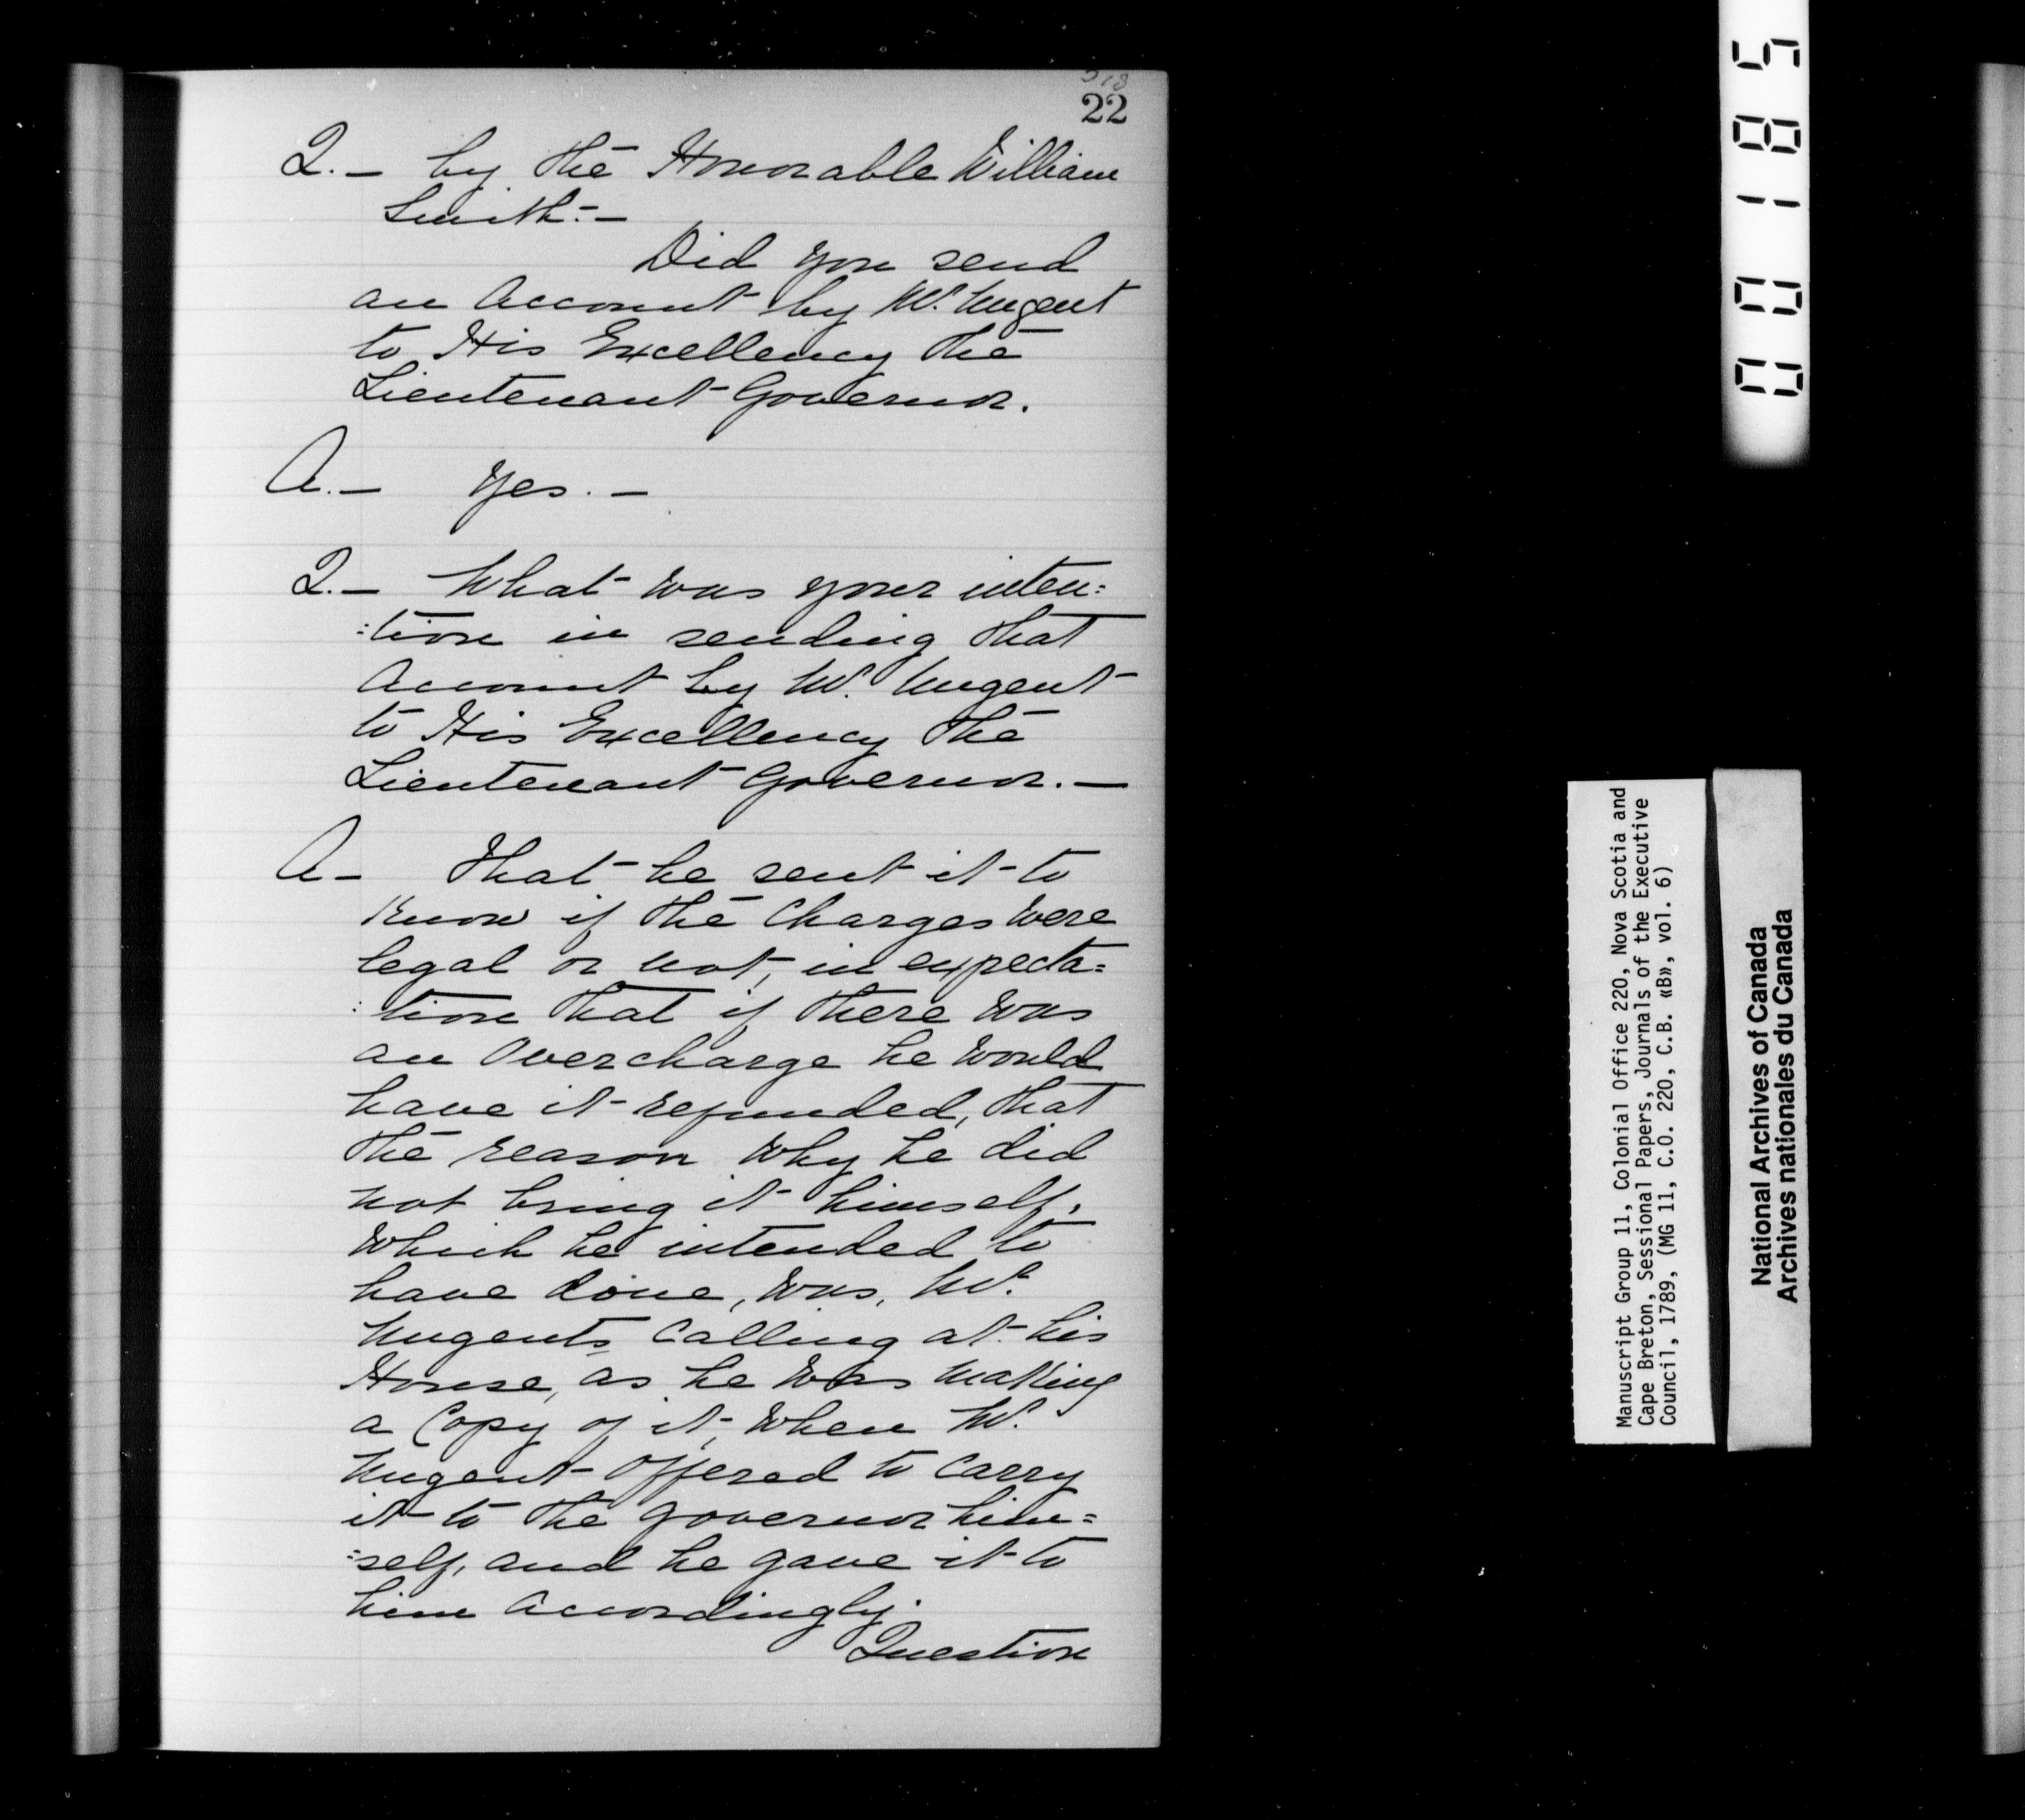 22
Q. — by the Honorable William
Smith: —
Did you send
an Account by Mr. Nugent
to His Excellency the
Lieutenant Governor.
A. — Yes. —
Q. — What was your inten=
:tion in sending that
Account by Mr. Nugent
to His Excellency the
Lieutenant Governor. —
A — That he sent it to
know if the Charges were
legal or not, in expecta=
:tion that if there was
an Overcharge he would
have it refunded, that
the reason why he did
not bring it himself,
which he intended to
have done, was, Mr.
Nugents calling at his
House, as he was making
a Copy of it, when Mr.
Nugent offered to carry
it to the Governor him=
:self, and he gave it to
him accordingly.
Question
00185
Manuscript Group 11, Colonial Office 220, Nova Scotia and
Cape Breton, Sessional Papers, Journals of the Executive
Council, 1789, (MG 11, C.O. 220, C.B. «B», vol. 6)
National Archives of Canada
Archives nationales du Canada